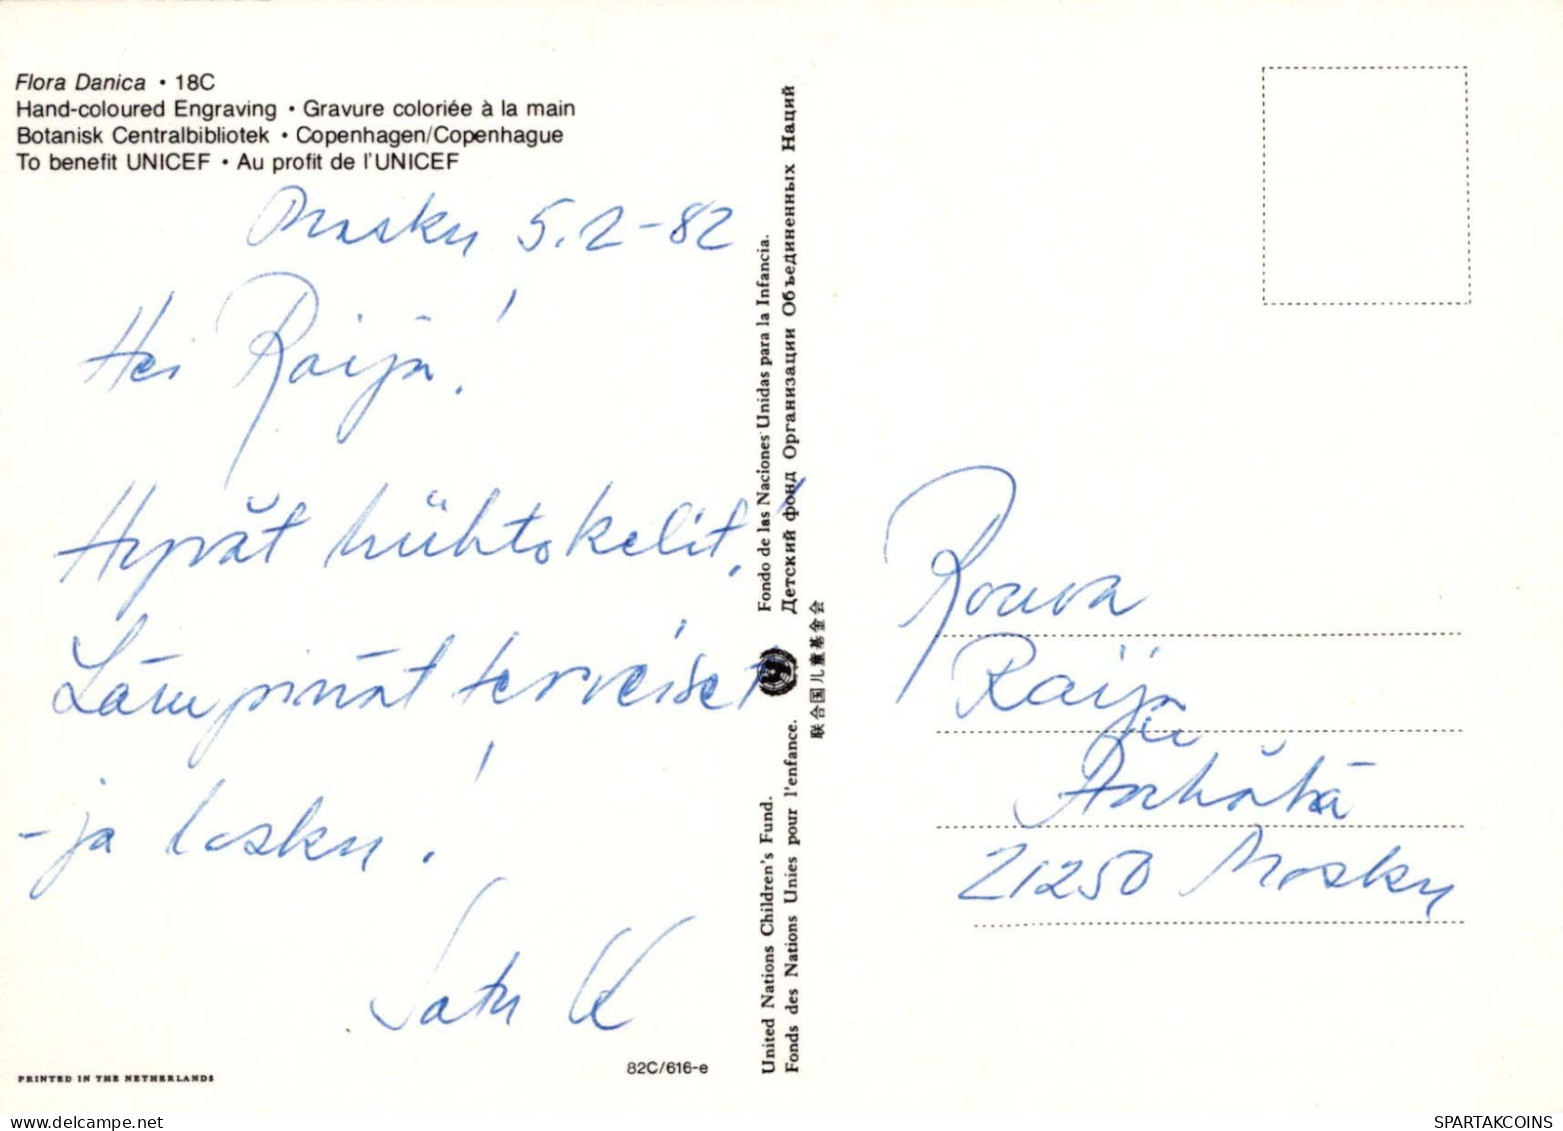 Flora Danica • 18C
Hand-coloured Engraving • Gravure coloriée à la main
Botanisk Centralbibliotek • Copenhagen/Copenhague
To benefit UNICEF • Au profit de l'UNICEF
Masku 5.2-82
Hei Raija!
Hyvät hiihtokelit!
Lämpimät terveiset
- ja lasku!
Satu K
PRINTED IN THE NETHERLANDS
82C/616-e
United Nations Children's Fund. Fondo de las Naciones Unidas para la Infancia.
Fonds des Nations Unies pour l'enfance. Детский фонд Организации Объединенных Наций
联合国儿童基金会
Rouva
Raija
21250 Masku
SPARTAKCOINS
hipstamp.com